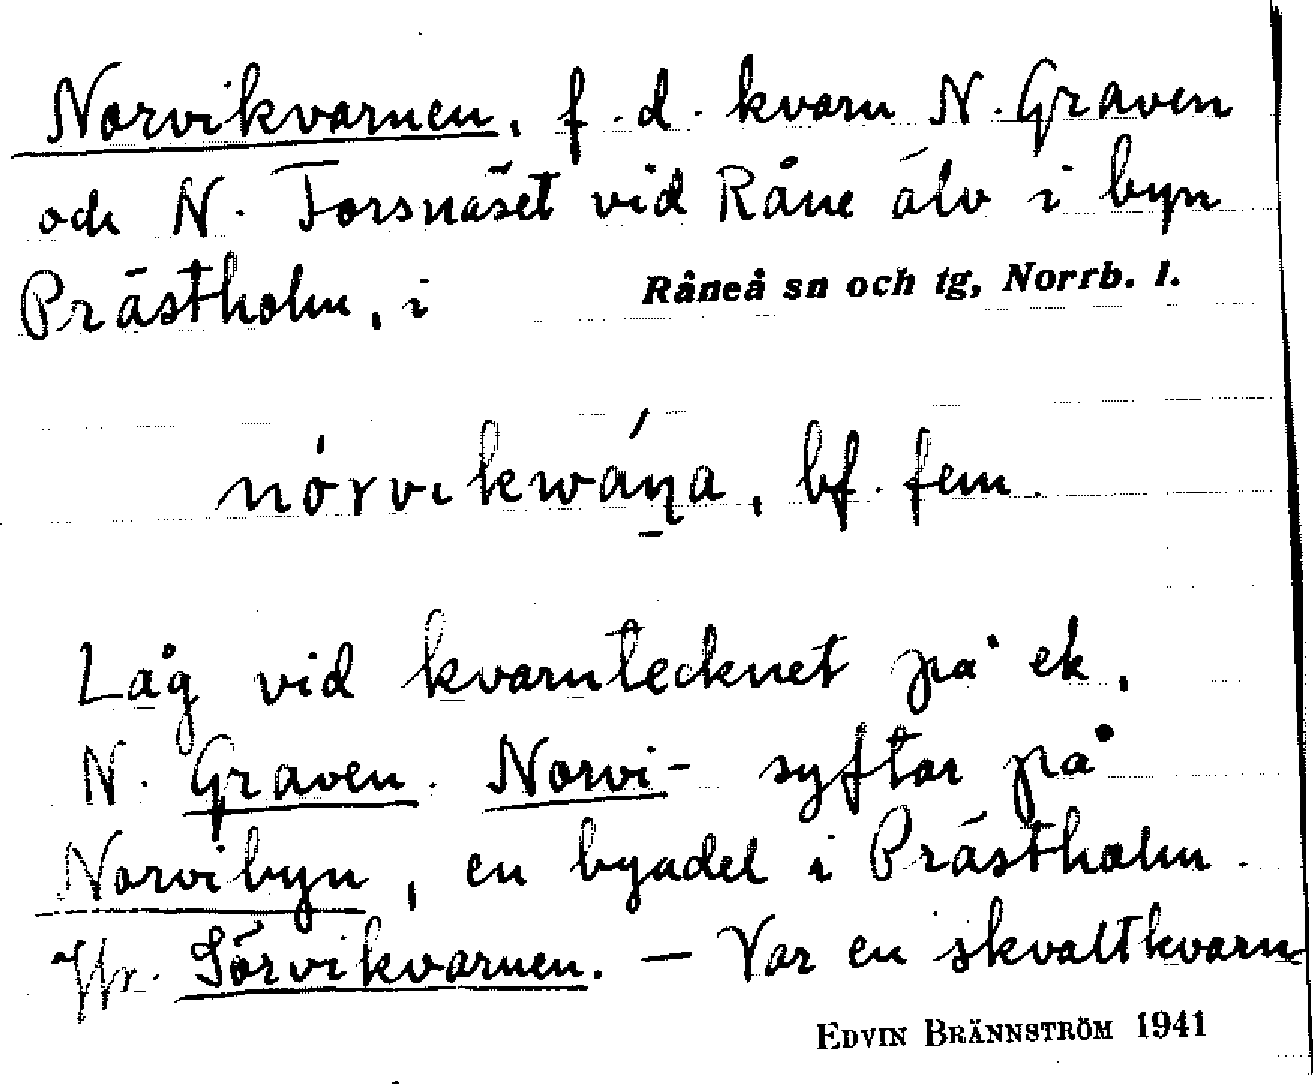 Norvikvarnen, f.d. kvarn N. Graven
och N. Forsnäset vid Råne älv i byn
Prästholm, i Råneå sn och tg, Norrb. l.
nórvikwáṇa, bf. fem.
Låg vid kvarntecknet på ek,
N. Graven. Norvi- syftar på
Norvibyn, en byadel i Prästholm.
Jfr. Sörvikvarnen. — Var en skvaltkvarn
EDVIN BRÄNNSTRÖM 1941